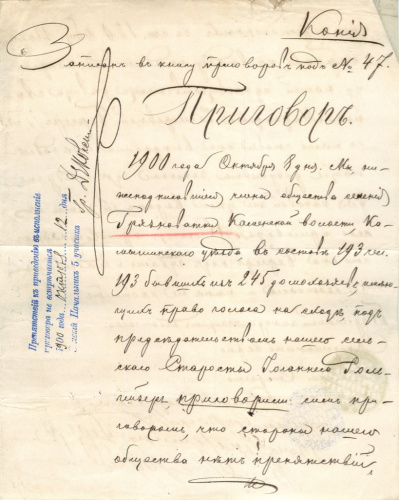 Копія
Записанъ въ книгу приговоровъ подъ № 47.
Приговоръ.
1900 года Октября 8 дня. Мы, ни-
жеподписавшіеся члены общества селенія
Грязноватки Каменской волости, Ка-
мышинскаго уѣзда въ составѣ 193 чел.
193 бывшихъ изъ 245 домохозяевъ, имѣю-
щихъ право голоса на сходѣ, подъ
предсѣдательствомъ нашего сель-
скаго Старосты Іоганнеса
приговорили: симъ при-
говоромъ, что стороны нашего
общества нѣтъ препятствій
Препятствій къ приведенію въ исполненіе
приговора не встрѣчается
1900 года 12 дня
Земскій Начальникъ 6 участка
Гр. Д.